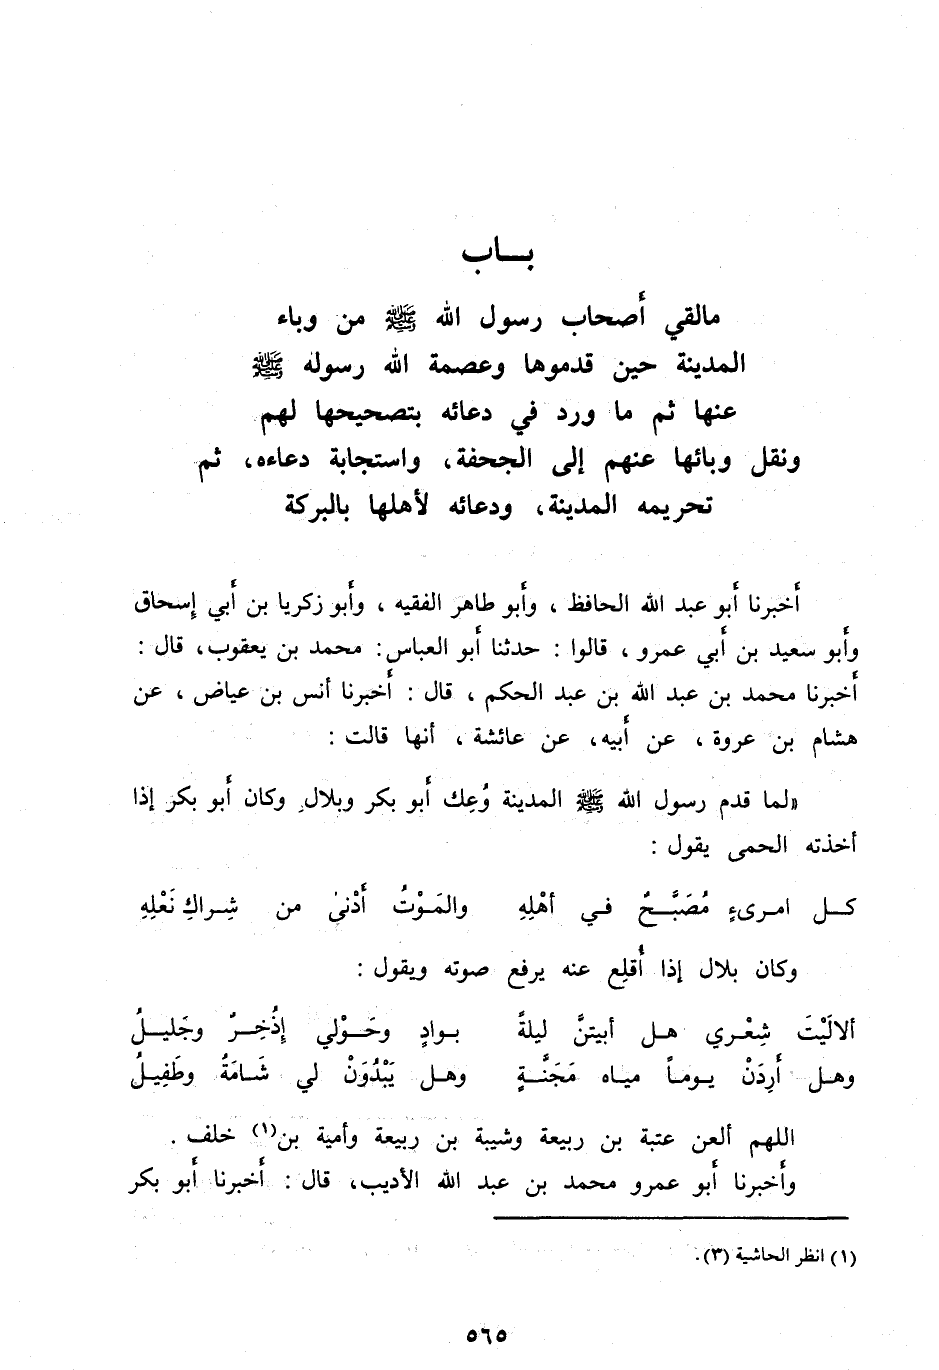 بـــاب
مالقي أصحاب رسول الله ﷺ من وباء
المدينة حين قدموها وعصمة الله رسوله ﷺ
عنها ثم ما ورد في دعائه بتصحيحها لهم
ونقل وبائها عنهم إلى الجحفة، واستجابة دعاءه، ثم
تحريمه المدينة، ودعائه لأهلها بالبركة
أخبرنا أبو عبد الله الحافظ ، وأبو طاهر الفقيه ، وأبو زكريا بن أبي إسحاق
وأبو سعيد بن أبي عمرو ، قالوا : حدثنا أبو العباس: محمد بن يعقوب، قال :
أخبرنا محمد بن عبد الله بن عبد الحكم ، قال : أخبرنا أنس بن عياض ، عن
هشام بن عروة ، عن أبيه، عن عائشة ، أنها قالت :
«لما قدم رسول الله ﷺ المدينة وُعِك أبو بكر وبلال. وكان أبو بكر إذا
أخذته الحمى يقول :
كـــل امـرىءٍ مُصَبَّـــحٌ فــي أهْلِهِ والمَـوْتُ أَدْنىٰ من شِــراكِ نَعْلِهِ
وكان بلال إذا أُقلِع عنه يرفع صوته ويقول :
ألالَيْتَ شِعْــري هــل أبيتنَّ ليلةً بــوادٍ وحَــوْلي إذْخِــرٌ وجَليــلُ
وهــل أَرِدَنْ يـومـاً ميـاه مَجَنَّـــةٍ وهــل يَبْدُوَنْ لي شَـامَةُ وطَفِيلُ
اللهم ألعن عتبة بن ربيعة وشيبة بن ربيعة وأمية بن(١) خلف .
وأخبرنا أبو عمرو محمد بن عبد الله الأديب، قال : أخبرنا أبو بكر
(١) انظر الحاشية (٣).
٥٦٥